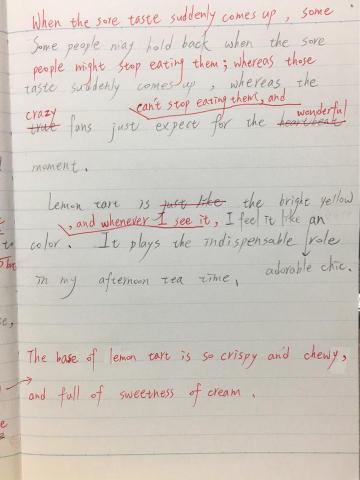 When the sore taste suddenly comes up, some
Some people may hold back when the sore
people might stop eating them; whereas those
taste suddenly comes up, whereas the
can't stop eating them, and
crazy wonderful
true fans just expect for the heartbeat
moment.
Lemon tart is just like the bright yellow
, and whenever I see it, I feel it like an
color. It plays the indispensable role
adorable chic.
in my afternoon tea time.
The base of lemon tart is so crispy and chewy,
and full of sweetness of cream.